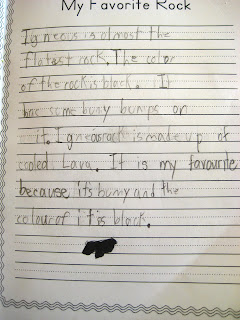 My Favorite Rock
Igneous is almost the
flatest rock. The color
of the rock is black. It
has some bumy bumps on
it. Igneos rock is made up of
cooled Lava. It is my favourite
because it's bumy and the
colour of it is black.